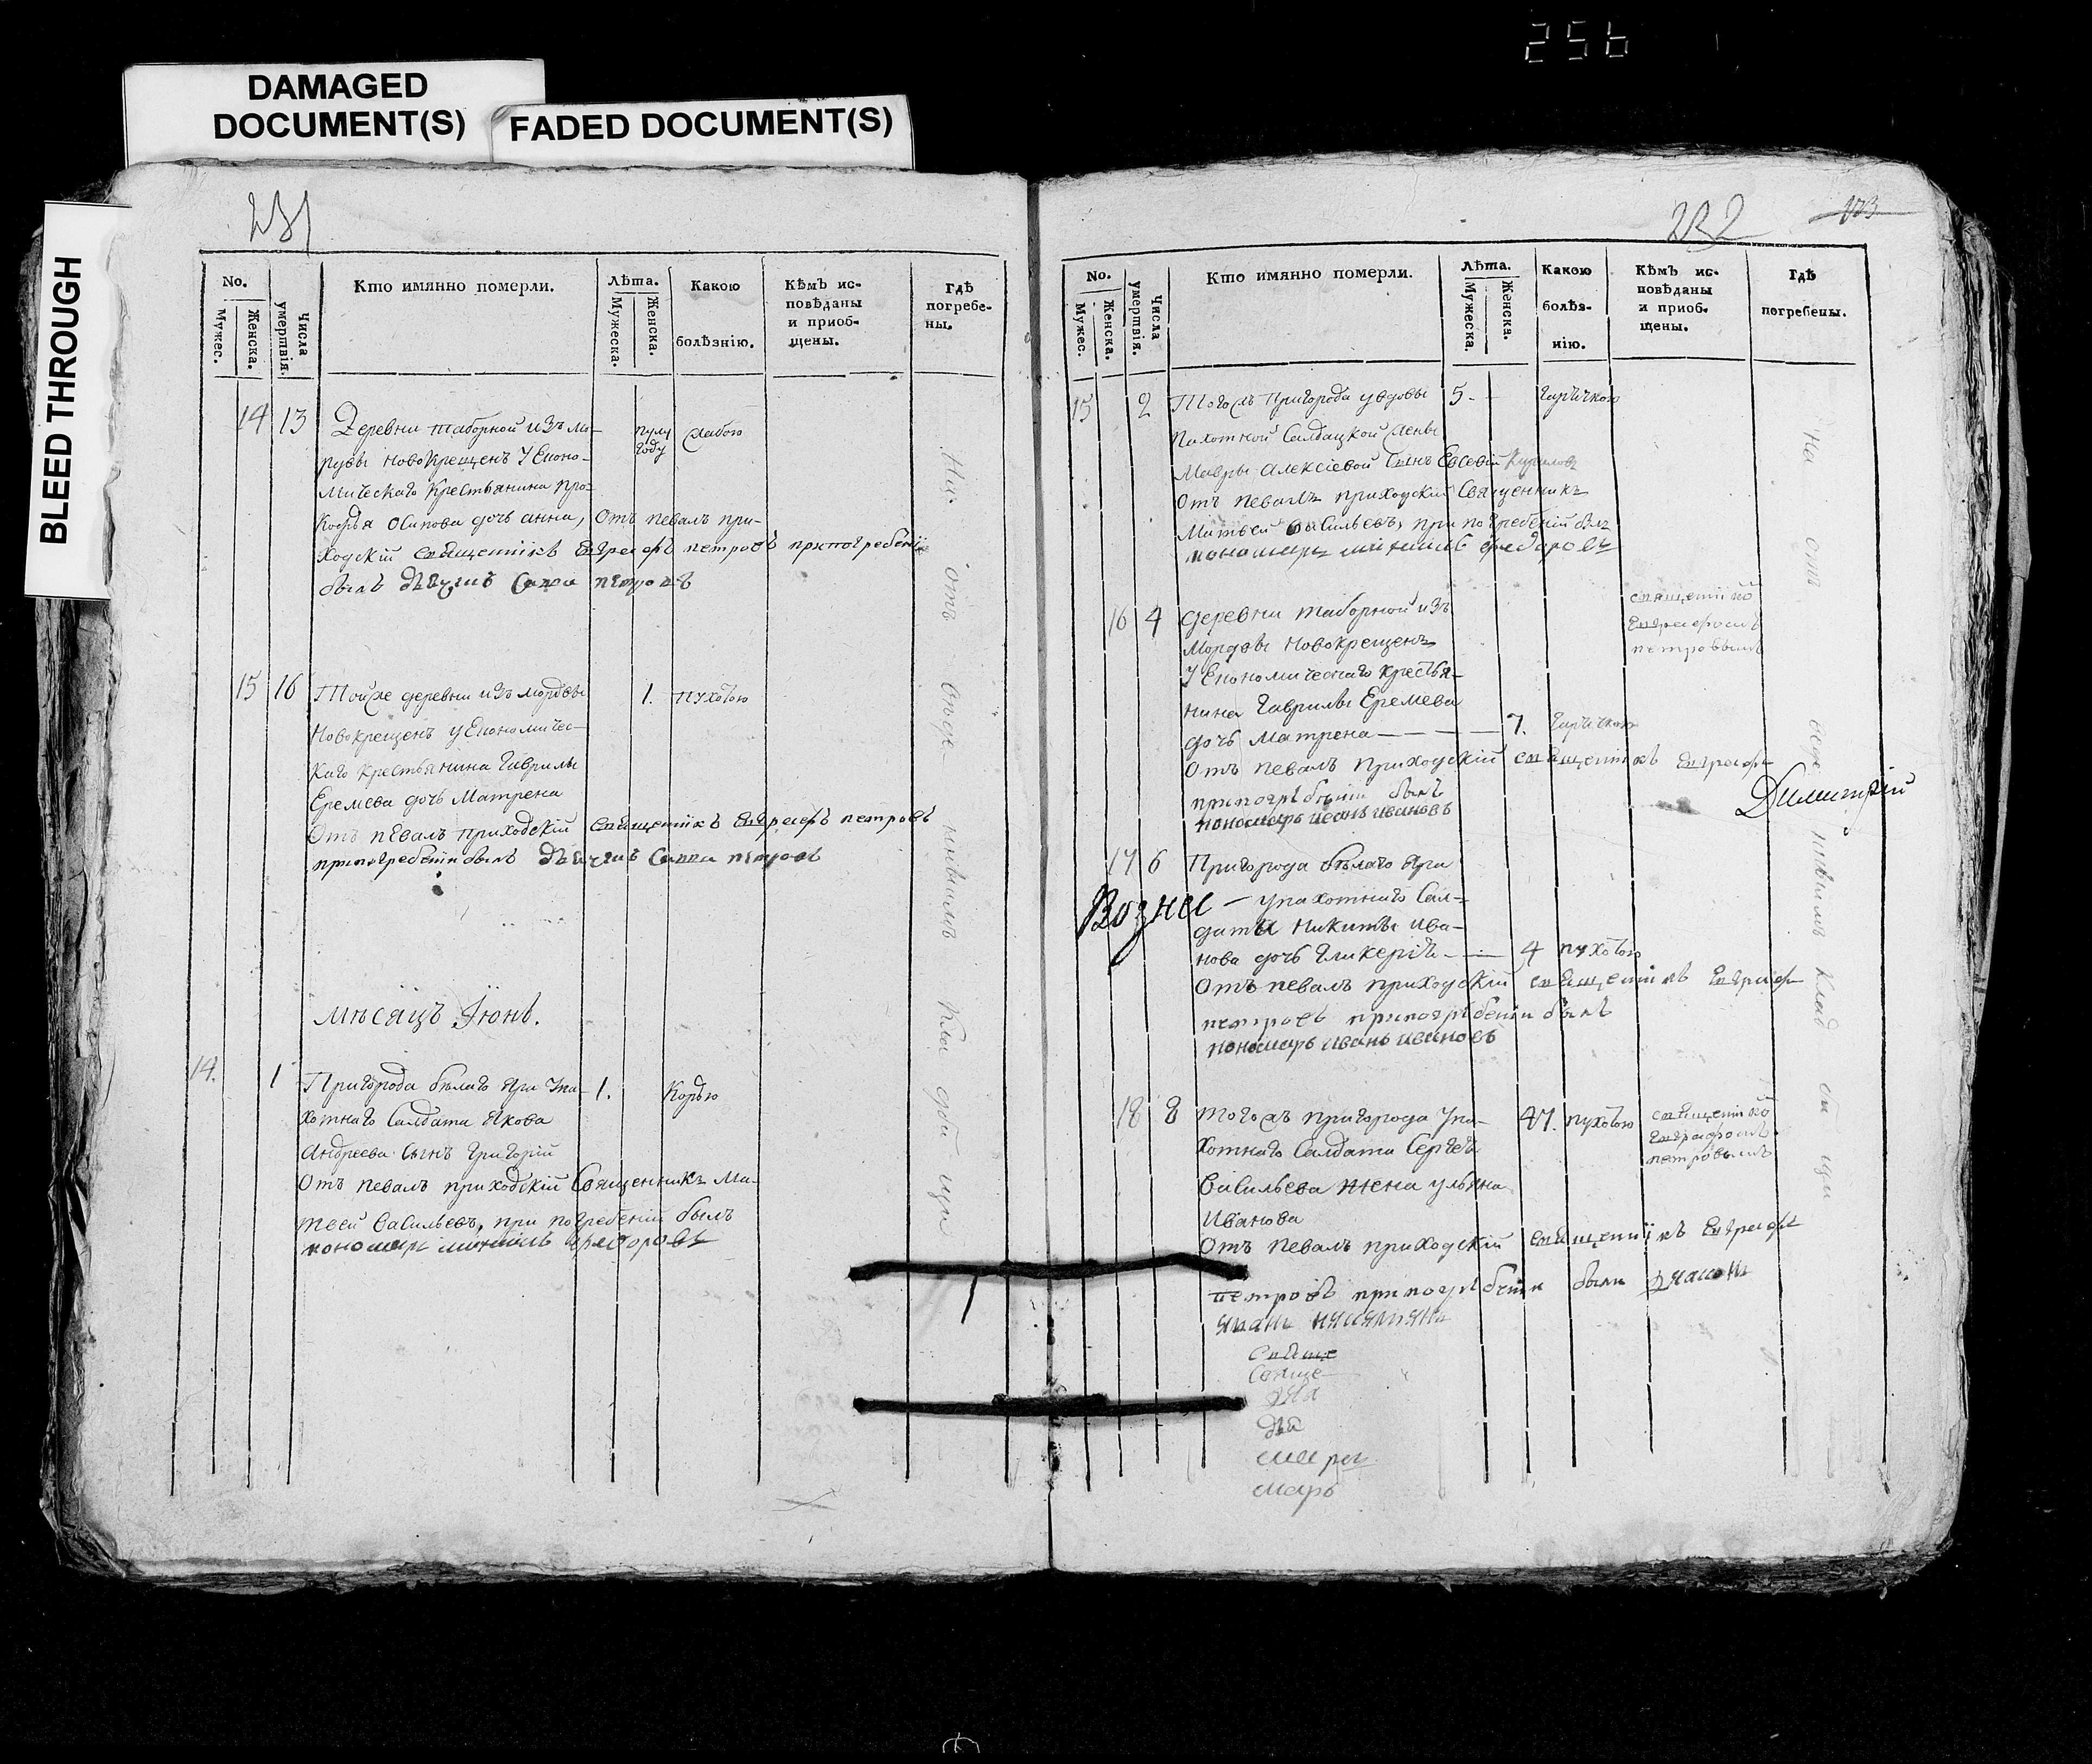 256
DAMAGED
DOCUMENT(S)
FADED DOCUMENT(S)
BLEED THROUGH
231
No.
Мужес.
Женска.
Числа умертвія.
Кто имянно померли.
Лѣта.
Мужеска.
Женска.
Какою
болѣзнію.
Кѣмъ ис-
повѣданы
и приоб-
щены.
Гдѣ
погребе-
ны.
14 13 Деревни таборной изъ
новокрещенъ У Еконо-
мическаго Крестьянина про-
кофья Осипова дочь анна, Отъ певалъ при-
ходскій священникъ Евграфъ петровъ припогребеніи
былъ дьячекъ Савва петровъ
пулу
году
слабою
15 16 Тойже деревни изъ мордвы 1. пухотою
Новокрещенъ у Економичес-
каго крестьянина Гаврилы
Еремева дочь Матрена
Отъ певалъ приходскій священникъ Евграфъ петровъ
припогребеніи былъ дьячекъ Савва петровъ
мѣсяцъ Іюнь.
14. 1 Пригорода бѣлаго Яра Упа- 1. Корью
хотнаго Салдата Якова
Андреева сынъ Григорій
Отъ певалъ приходскій Священникъ Ма-
твей Васильевъ, при погребеніи былъ
пономарь михаилъ федоровъ
На отъ веде нномъ Кла дби щи
232
173
No.
Мужес.
Женска.
Числа умертвія.
Кто имянно померли.
Лѣта.
Мужеска.
Женска.
Какою
болѣз-
нію.
Кѣмъ ис-
повѣданы
и приоб-
щены.
Гдѣ
погребены.
15 2 Тогожъ Пригорода увдовы 5 - Гарячкою
Пахотной Салдацкой жены
Мавры Алексіевой Сынъ Евсевій Кириловъ
Отъ певалъ приходскій Священникъ
Матвей Васильевъ, при погребеній былъ
пономарь михаилъ федоровъ
16 4 деревни таборной изъ
Мордвы Новокрещенъ
У Економическаго крестья-
нина Гаврилы Еремева
дочь Матрена — 7. Гарячкою
Отъ певалъ приходскій священникъ Евграфъ
припогребеніи былъ
пономарь иванъ ивановъ
священнико
Евграфомъ
петровымъ
Димитрій
17 6 Пригорода бѣлаго Яра
Вознес — упахотнаго Сал-
даты Никиты Ива-
нова дочь Гликерія — 4 пухотою
Отъ певалъ приходскій священникъ Евграфъ
петровъ припогребеніи былъ
пономарь иванъ ивановъ
18 8 тогожъ пригорода Упа- 41. пухотою
хотнаго Салдата Сергея
Васильева жена ульяна
Иванова
Отъ певалъ приходскій священникъ Евграфъ
петровъ припогребеніи были дьяконъ
священнико
Евграфомъ
петровымъ
Свяще
дья
марь
На отъ веде нномъ Клад би щи